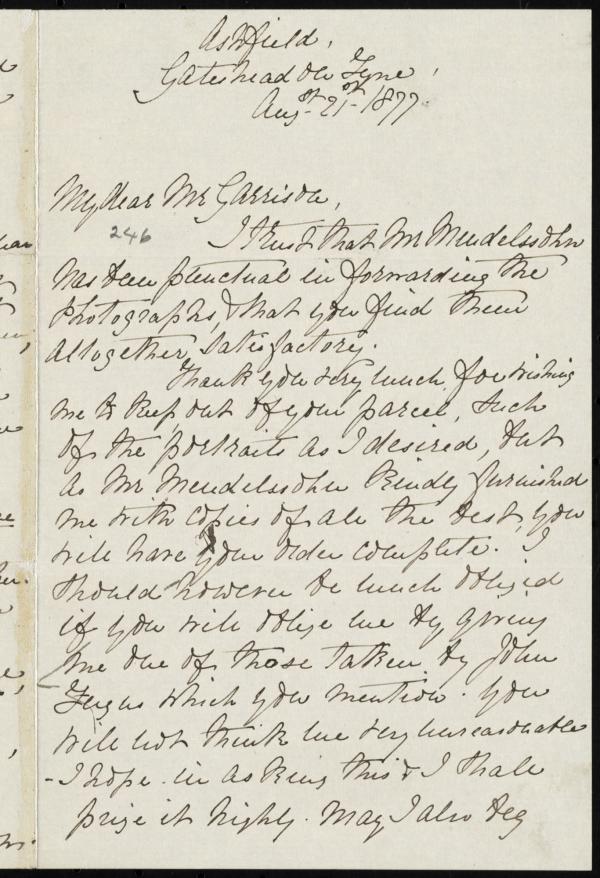 Ashfield,
Gateshead on Tyne,
Augst 21st 1877.
My dear Mr Garrison,
246
I trust that Mr Mendelssohn
has been punctual in forwarding the
Photographs, & that you find them
altogether satisfactory.
Thank you very much for wishing
me to keep out of your parcel, such
of the portraits as I desired, but
as Mr Mendelssohn kindly furnished
me with copies of all the best, you
will have your order complete. I
should however be much obliged
if you will oblige me by giving
me one of those taken by John
Fergus which you mention. You
will not think me very unreasonable
- I hope - in asking this & I shall
prize it highly. May I also beg